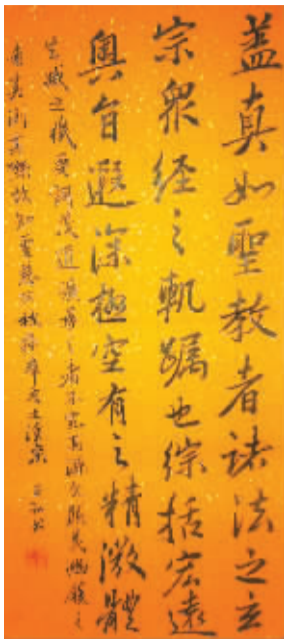 盖真如聖教者諸法之玄
宗眾經之軌躅也綜括宏遠
奥旨遐深極空有之精微體
生滅之機要詞茂道曠尋之者不究其源文顯義幽履之
者莫測其際故知聖慈所被